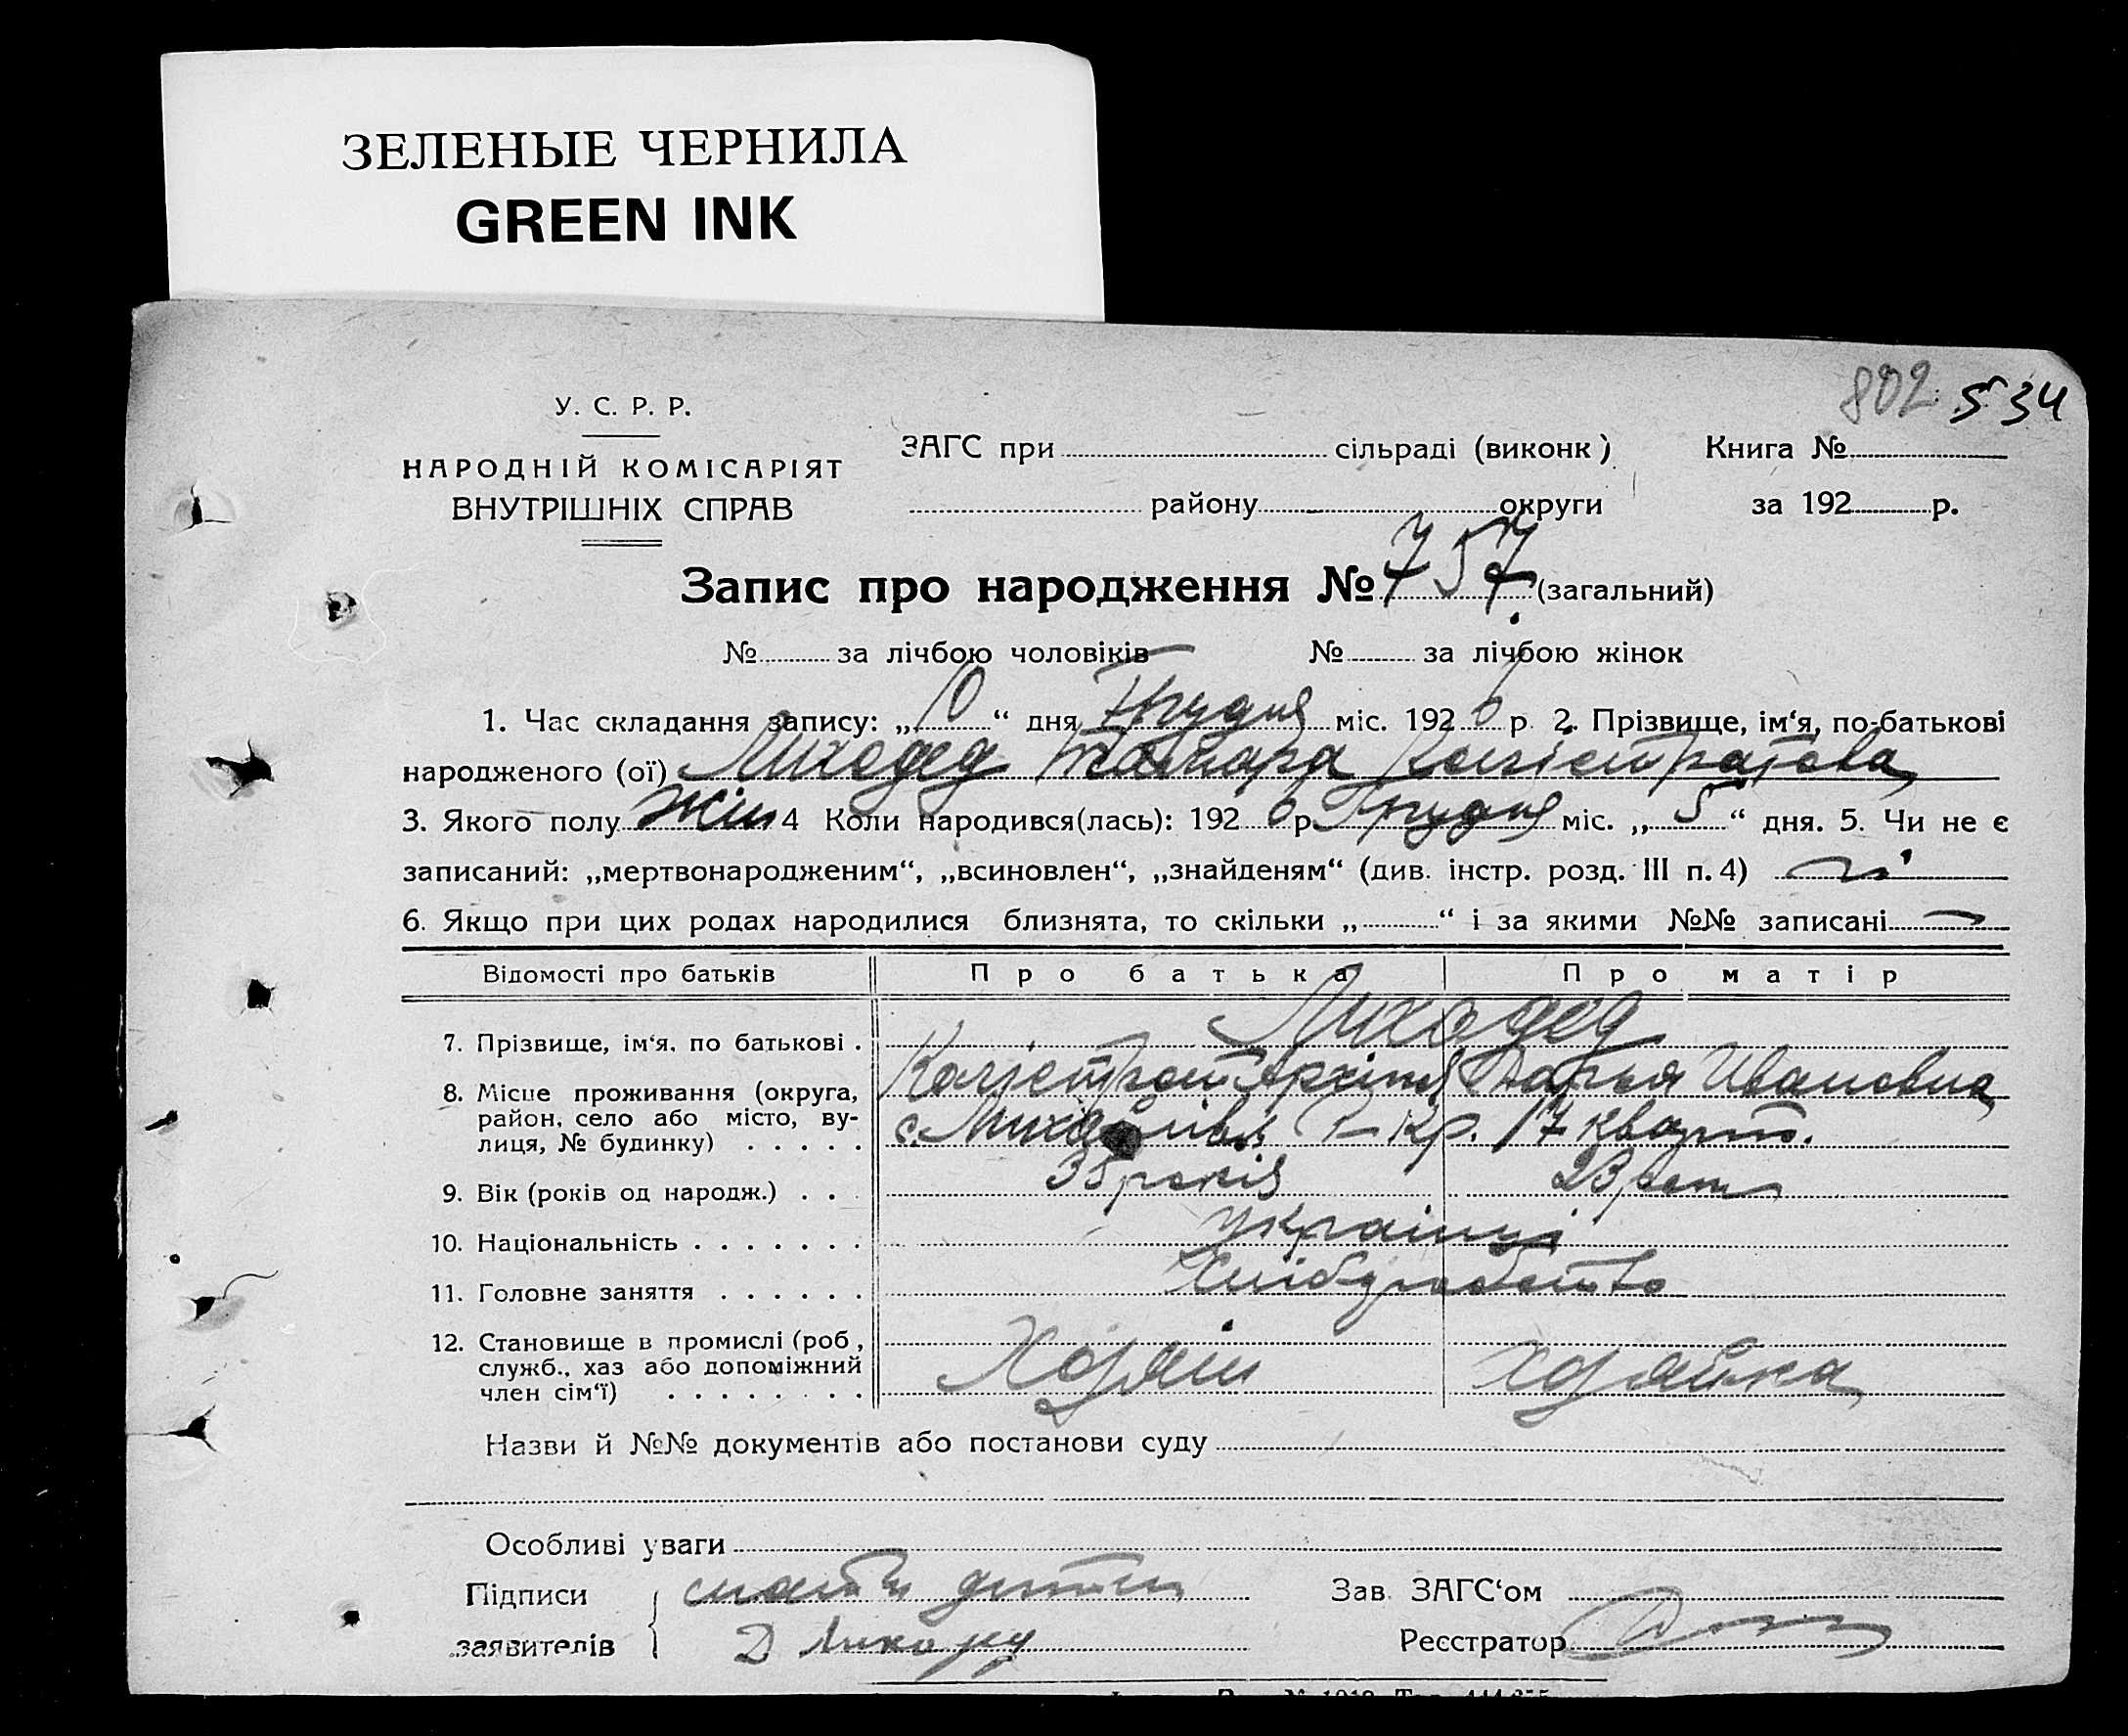 ЗЕЛЕНЫЕ ЧЕРНИЛА
GREEN INK
802 534
У. С. Р. Р.
НАРОДНІЙ КОМІСАРІЯТ
ВНУТРІШНІХ СПРАВ
ЗАГС при сільраді (виконк) Книга №
району округи за 192 р.
Запис про народження № 757 (загальний)
№ за лічбою чоловіків № за лічбою жінок
1. Час складання запису: „10“ дня Грудня міс. 1926 р. 2. Прізвище, ім‘я, по-батькові
народженого (ої) Лиходед Тамара
3. Якого полу жін 4 Коли народився(лась): 1926 р. Грудня міс. „5“ дня. 5. Чи не є
записаний: „мертвонародженим“, „всиновлен“, „знайденям“ (див. інстр. розд. III п. 4) ні
6. Якщо при цих родах народилися близнята, то скільки „ “ і за якими №№ записані —
Відомості про батьків Про батька Про матір
7. Прізвище, ім‘я, по батькові . Лиходед
Дарья Ивановна
8. Місце проживання (округа,
район, село або місто, ву-
лиця, № будинку) . . . . . с. 17 кварт.
9. Вік (років од народж.) . . . 35 років 23 рок
10. Національність . . . . . . . українці
11. Головне заняття . . . . . . Хліборобство
12. Становище в промислі (роб,
служб., хаз або допоміжний
член сім‘ї) . . . . . . . . Хозяїн хозяйка
Назви й №№ документів або постанови суду
Особливі уваги
Підписи мати дитини Зав. ЗАГС‘ом
заявителів Д Лиходед Реєстратор